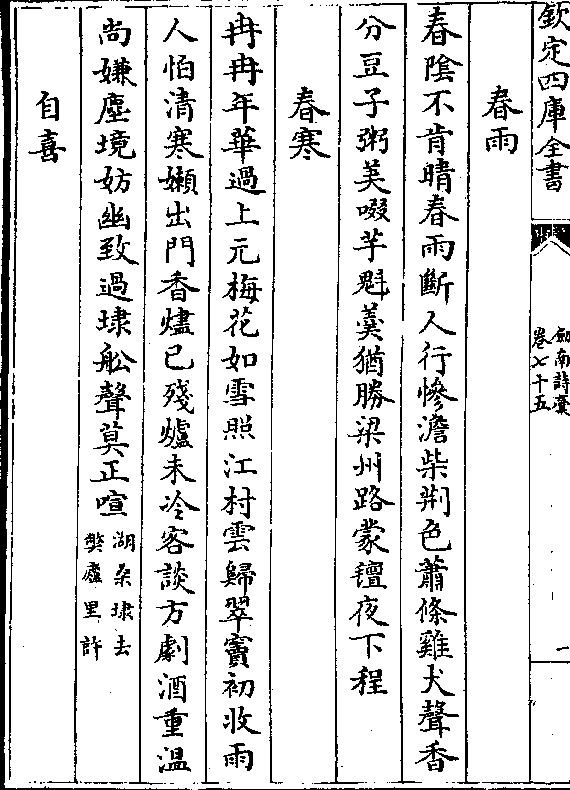 欽定四庫全書
劒南詩稾
卷七十五
一
春雨
春隂不肯晴春雨斷人行慘澹柴荆色蕭條雞犬聲香
分豆子粥美啜芋魁羮猶勝梁州路蒙氊夜下程
春寒
冉冉年華過上元梅花如雪照江村雲歸翠竇初收雨
人怕清寒嬾出門香燼已殘爐未冷客談方劇酒重温
尚嫌塵境妨幽致過埭船聲莫正喧
湖桑埭去
弊廬里許
自喜